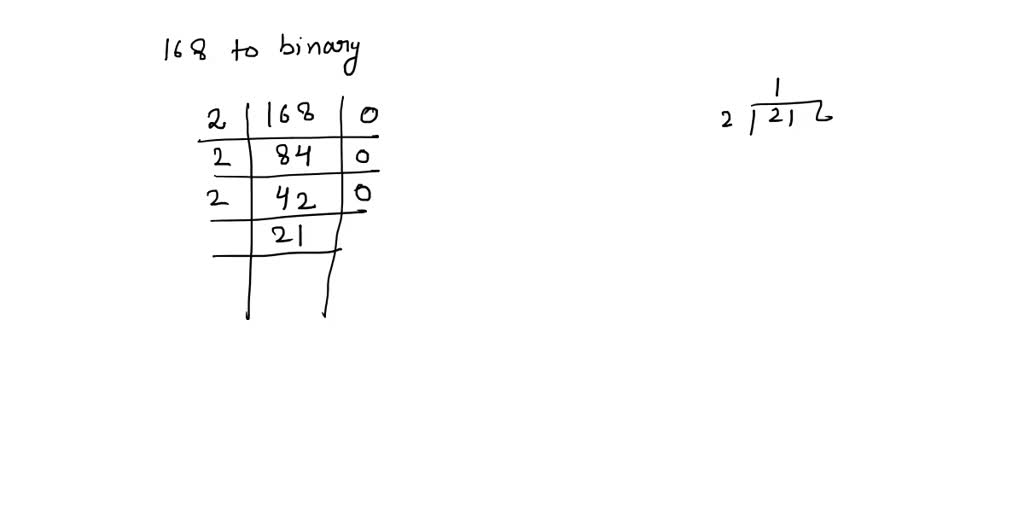 168 to binary
2 168 0
2 84 0
2 42 0
21
1
2 21